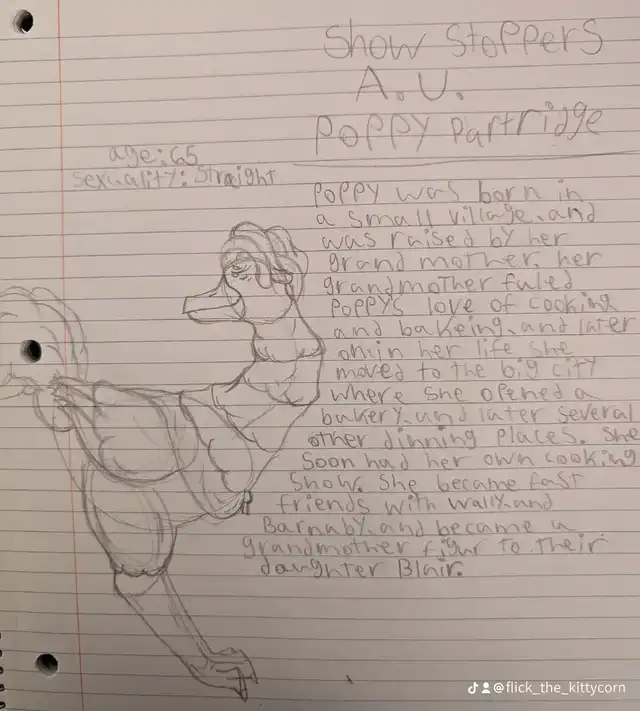 Show Stoppers
A.U.
Poppy Partridge
age: 65
sexuality: straight
Poppy was born in
a small village, and
was raised by her
grand mother, her
grandmother fuled
Poppy's love of cooking
and bakeing, and later
on in her life she
moved to the big city
where she opened a
bakery, and later several
other dinning places. She
soon had her own cooking
show. She became fast
friends with Wally, and
Barnaby, and became a
grandmother figur to their
daughter Blair.
@flick_the_kittycorn